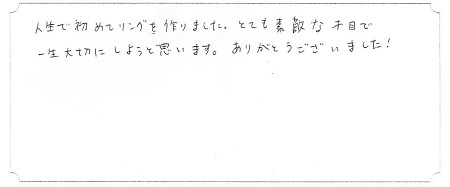 人生で初めてリングを作りました。とても素敵な木目で
一生大切にしようと思います。ありがとうございました!